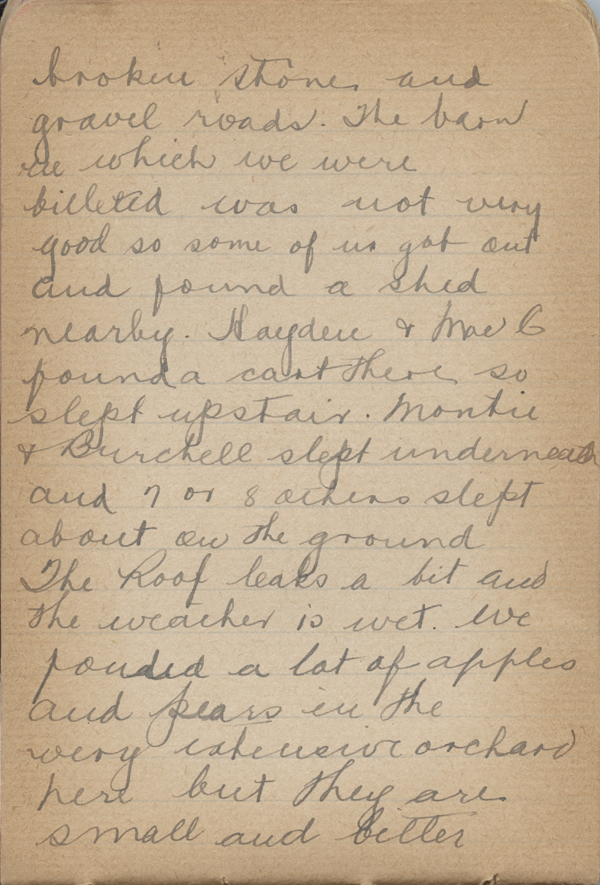 broken stone and
gravel roads. The barn
in which we were
billeted was not very
good so some of us got out
and found a shed
nearby. Hayden & Mac C
found a cart there so
slept upstair. Montie
& Burchell slept underneath
and 7 or 8 others slept
about on the ground
The Roof leaks a bit and
the weather is wet. We
a lot of apples
and pears in the
very extensive orchard
here but they are
small and bitter